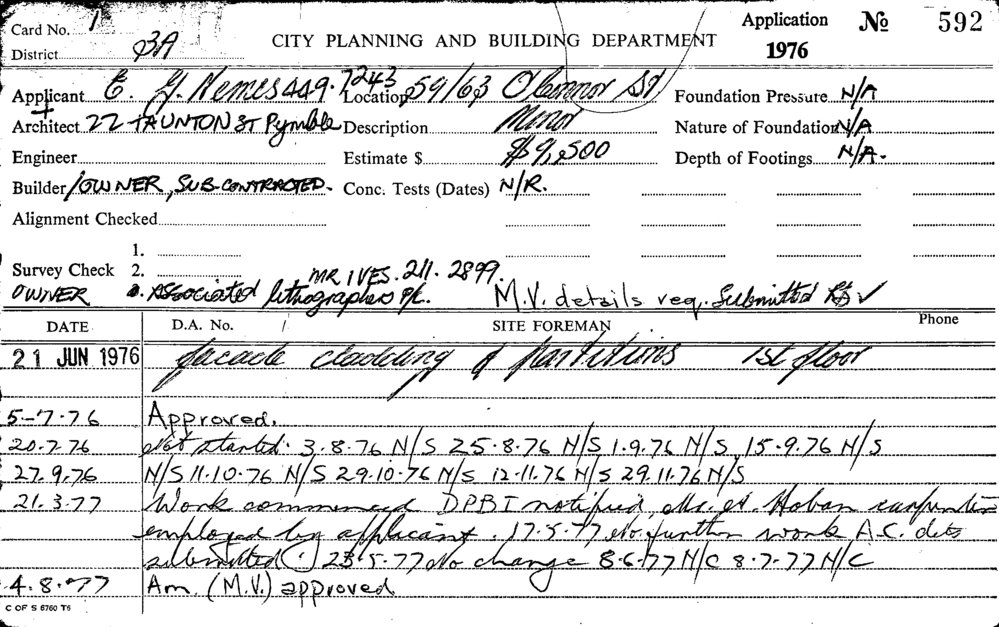 Card No. 1
District 3A
CITY PLANNING AND BUILDING DEPARTMENT
Application No 592
1976
Applicant E. Y. Nemes 449.7243 Location 59/63 O'Connor St Foundation Pressure N/A
+
Architect 22 TAUNTON ST Pymble Description Minor Nature of Foundation N/A
Engineer Estimate $ $9,500 Depth of Footings N/A.
Builder/OWNER, SUB-CONTRACTED. Conc. Tests (Dates) N/R.
Alignment Checked
1.
Survey Check 2. MR IVES. 211. 2899.
OWNER 3. ASSOCIATED lithographers P/L. M.V. details req. Submitted ✓
DATE D.A. No. / SITE FOREMAN Phone
21 JUN 1976 facade cladding & partitions 1st floor
5-7-76 Approved.
20.7.76 Not started. 3.8.76 N/S 25.8.76 N/S 1.9.76 N/S 15.9.76 N/S
27.9.76 N/S 11.10.76 N/S 29.10.76 N/S 12.11.76 N/S 29.11.76 N/S
21.3.77 Work commenced DPBI notified, Mr. Hoban carpenter
employed by applicant. 17.5.77 No further work A.C. dets
submitted. 23.5.77 No change 8.6.77 N/C 8.7.77 N/C
4.8.77 Am. (M.V.) approved
C OF S 6760 T6